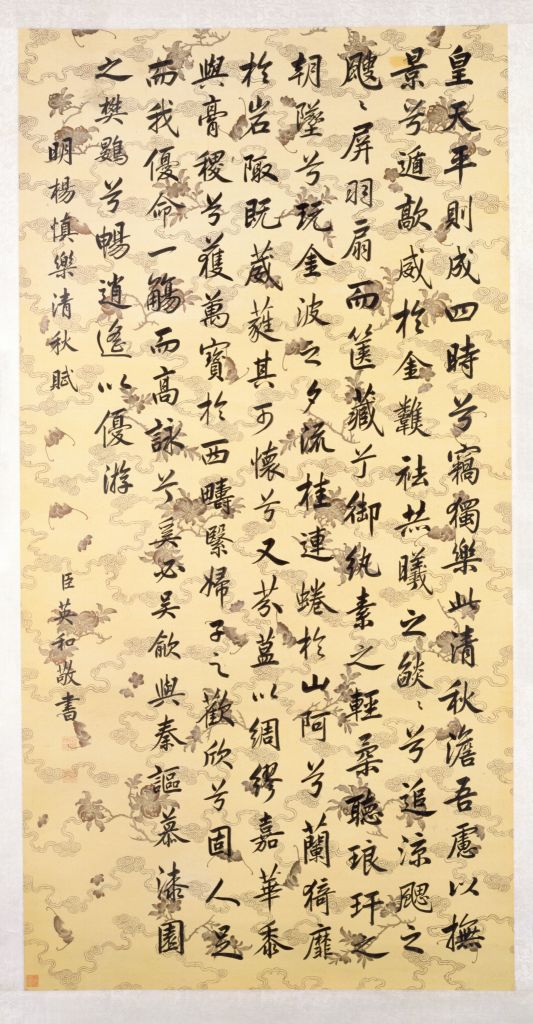 皇天平則成四時兮竊獨樂此清秋澹吾慮以撫
景兮遁歊威於金祛曦之燄〻兮追涼颸之
颼〻屏羽扇而篋藏兮御紈素之輕柔聽琅玕之
朝墜兮玩金波之夕流桂連蜷於山阿兮蘭猗靡
於岩陬既葳蕤其可懷兮又芬蒀以綢繆嘉華黍
與膏稷兮穫萬寶於西疇繄婦子之歡欣兮固人足
而我優命一觴而高詠兮奚必吳歈與秦謳慕漆園
之樊鷃兮暢逍遙以優游
明楊慎樂清秋賦
臣英和敬書